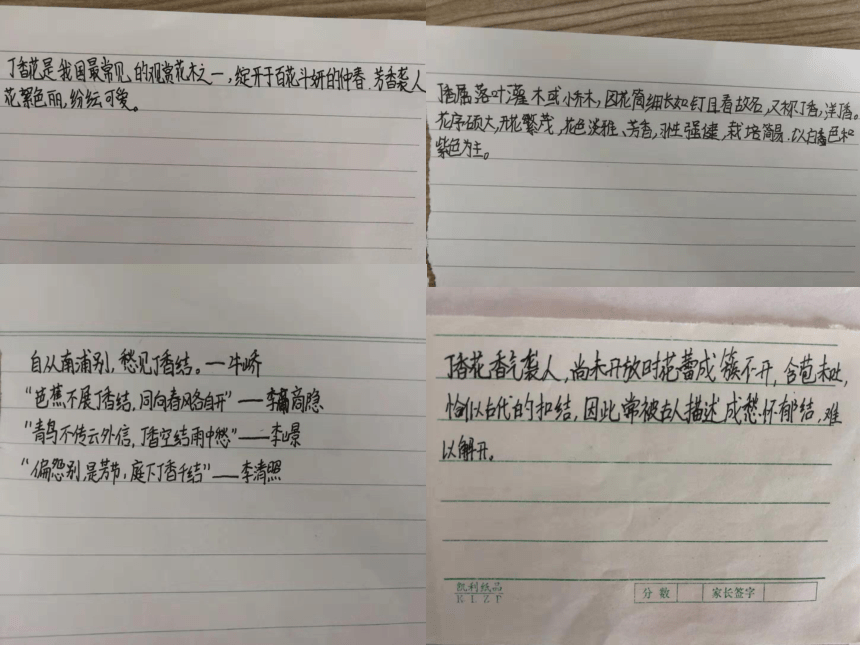 丁香花是我国最常见的观赏花木之一,绽开于百花斗妍的仲春.芳香袭人
花絮色丽,纷纭可爱。
丁香属落叶灌木或小乔木,因花筒细长如钉且香故名,又称丁香,洋丁香。
花序硕大,开花繁茂,花色淡雅、芳香,习性强健,栽培简易.以白色和
紫色为主。
自从南浦别,愁见丁香结。——牛峤
“芭蕉不展丁香结,同向春风各自开”——李商隐
“青鸟不传云外信,丁香空结雨中愁”——李璟
“偏怨别,是芳节,庭下丁香千结”——李清照
丁香花香气袭人,尚未开放时花蕾成簇不开,含苞未吐,
恰似古代的扣结,因此常被古人描述成愁怀郁结,难
以解开。
凯利纸品
KIZF
分数 家长签字